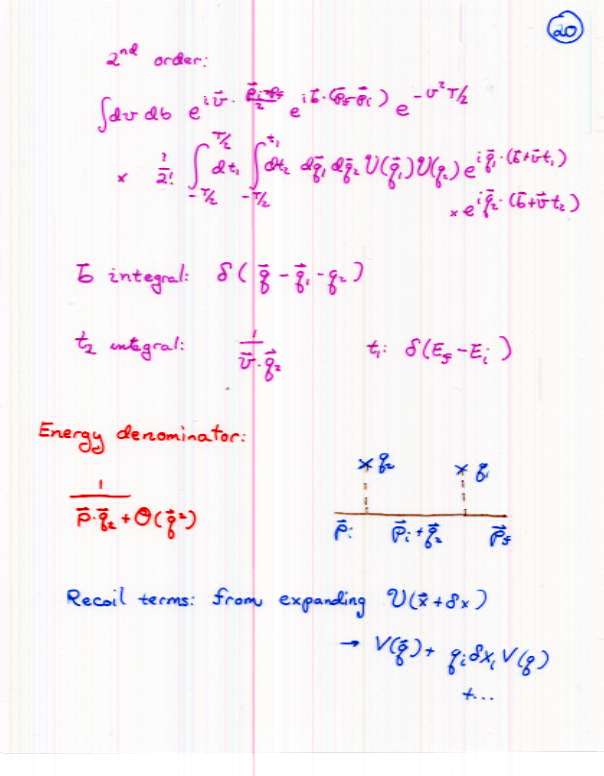 20
2nd order:
∫dv db e^{i v⃗ · (p⃗i+p⃗f)/2} e^{i b⃗ · (p⃗f−p⃗i)} e^{−v²T/2}
× 1/2! ∫_{−T/2}^{T/2} dt₁ ∫_{−T/2}^{t₁} dt₂ dq⃗₁ dq⃗₂ V(q⃗₁) V(q₂) e^{i q⃗₁ · (b⃗+v⃗t₁)}
× e^{i q⃗₂ · (b⃗+v⃗t₂)}
b⃗ integral: δ(q⃗ − q⃗₁ − q₂)
t₂ integral: 1/(v⃗·q⃗₂) t₁: δ(Ef − Ei)
Energy denominator:
× q₂ × q₁
1/(p⃗·q⃗₂ + O(q⃗²))
p⃗i p⃗i+q⃗₂ p⃗f
Recoil terms: from expanding V(x⃗ + δx)
→ V(q⃗) + qi δxi V(q)
+...